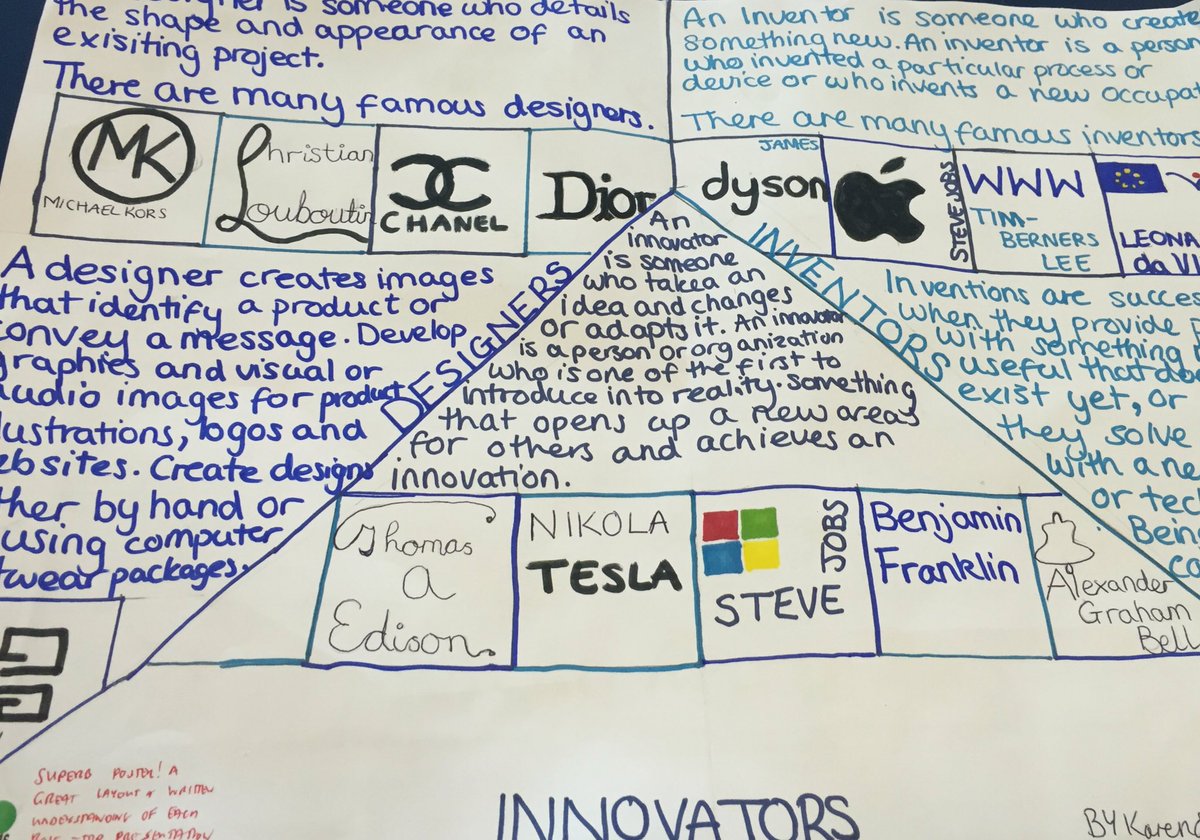 is someone who details
the shape and appearance of an
exisiting project.
There are many famous designers.
MK
MICHAEL KORS
Christian
Louboutin
CHANEL
Dior
A designer creates images
that identify a product or
convey a message. Develop
graphics and visual or
audio images for product
lustrations, logos and
ebsites. Create designs
ther by hand or
using computer
twear packages.
DESIGNERS
An Inventor is someone who create
something new. An inventor is a person
who invented a particular process or
device or who invents a new occupat
There are many famous inventors
JAMES
dyson
STEVE JOBS
WWW
TIM-
BERNERS
LEE
LEONA
da VI
INVENTORS
Inventions are succes
when they provide
with something
useful that
exist yet, or
they solve
with a ne
or tec
Being
co
An
innovator
is someone
who takea an
idea and changes
or adapts it. An innovator
is a person or organization
who is one of the first to
introduce into reality. Something
that opens up a new areas
for others and achieves an
innovation.
Thomas
a
Edison
NIKOLA
TESLA
STEVE
JOBS
Benjamin
Franklin
Alexander
Graham
Bell
SUPERB POSTER! A
GREAT LAYOUT & WRITTEN
UNDERSTANDING OF EACH
PRESENTATION
INNOVATORS
BY Karen